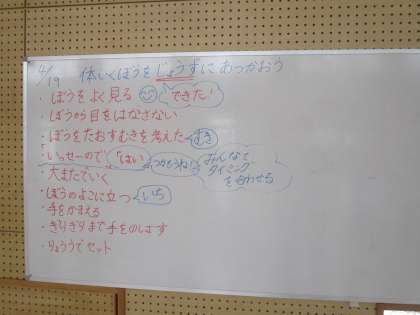 4/19 体いくぼうをじょうずにあつかおう
・ぼうをよく見る できた!
・ぼうから目をはなさない
・ぼうをたおすむきを考えた むき
・いっせーので「はい」 つかもうね! みんなでタイミングを合わせる
・大またでいく
・ぼうのよこに立つ いち
・手をかまえる
・ぎりぎりまで手をのばす
・りょううでセット